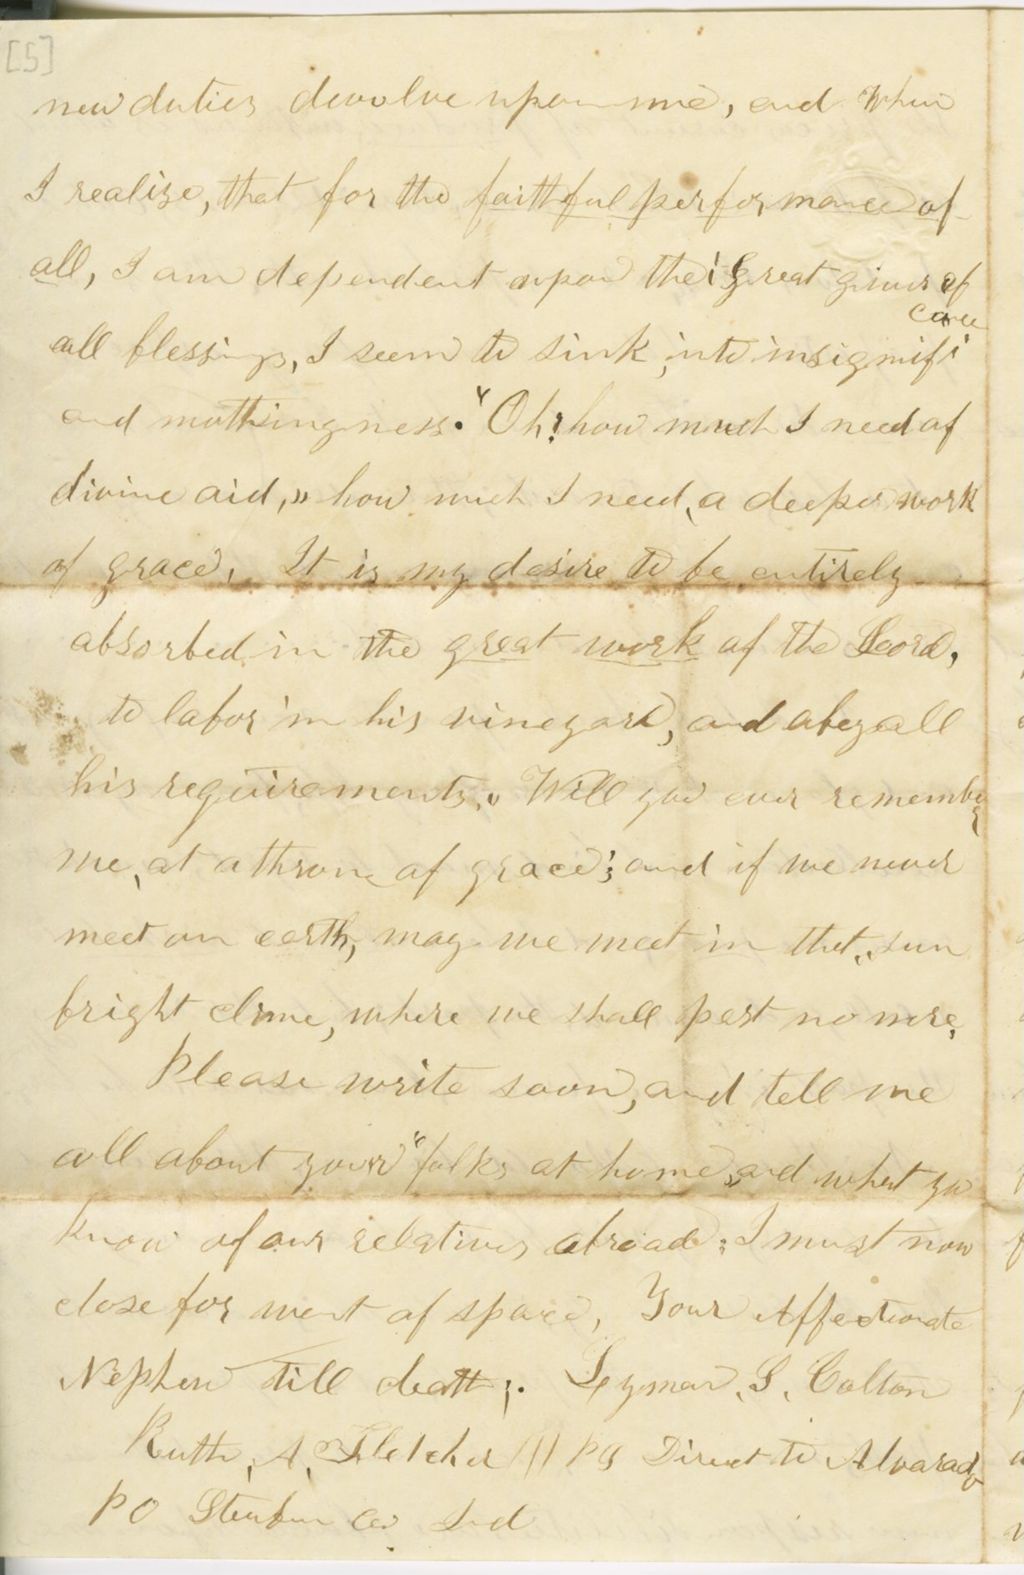 [5]
new duties devolve upon me, and when
I realize, that for the faithful performance of
all, I am dependent upon the Great giver of
all blessings, I seem to sink, into insignifi
cance
and nothingness. "Oh! how much I need of
divine aid," how much I need, a deeper work
of grace, It is my desire to be entirely
absorbed in the great work of the Lord,
to labor in his vineyard, and obey all
his requirements, Will you ever remember
me, at a throne of grace; and if we never
meet on earth, may we meet in that, sun
bright clime, where we shall part no more,
Please write soon, and tell me
all about your "folks at home", and what you
know of our relatives abroad; I must now
close for want of space, Your Affectionate
Nephew till death;. Lyman, S, Colton
Ruth, A, Fletcher /// PS Direct to Alvarado
PO Steuben Co Ind